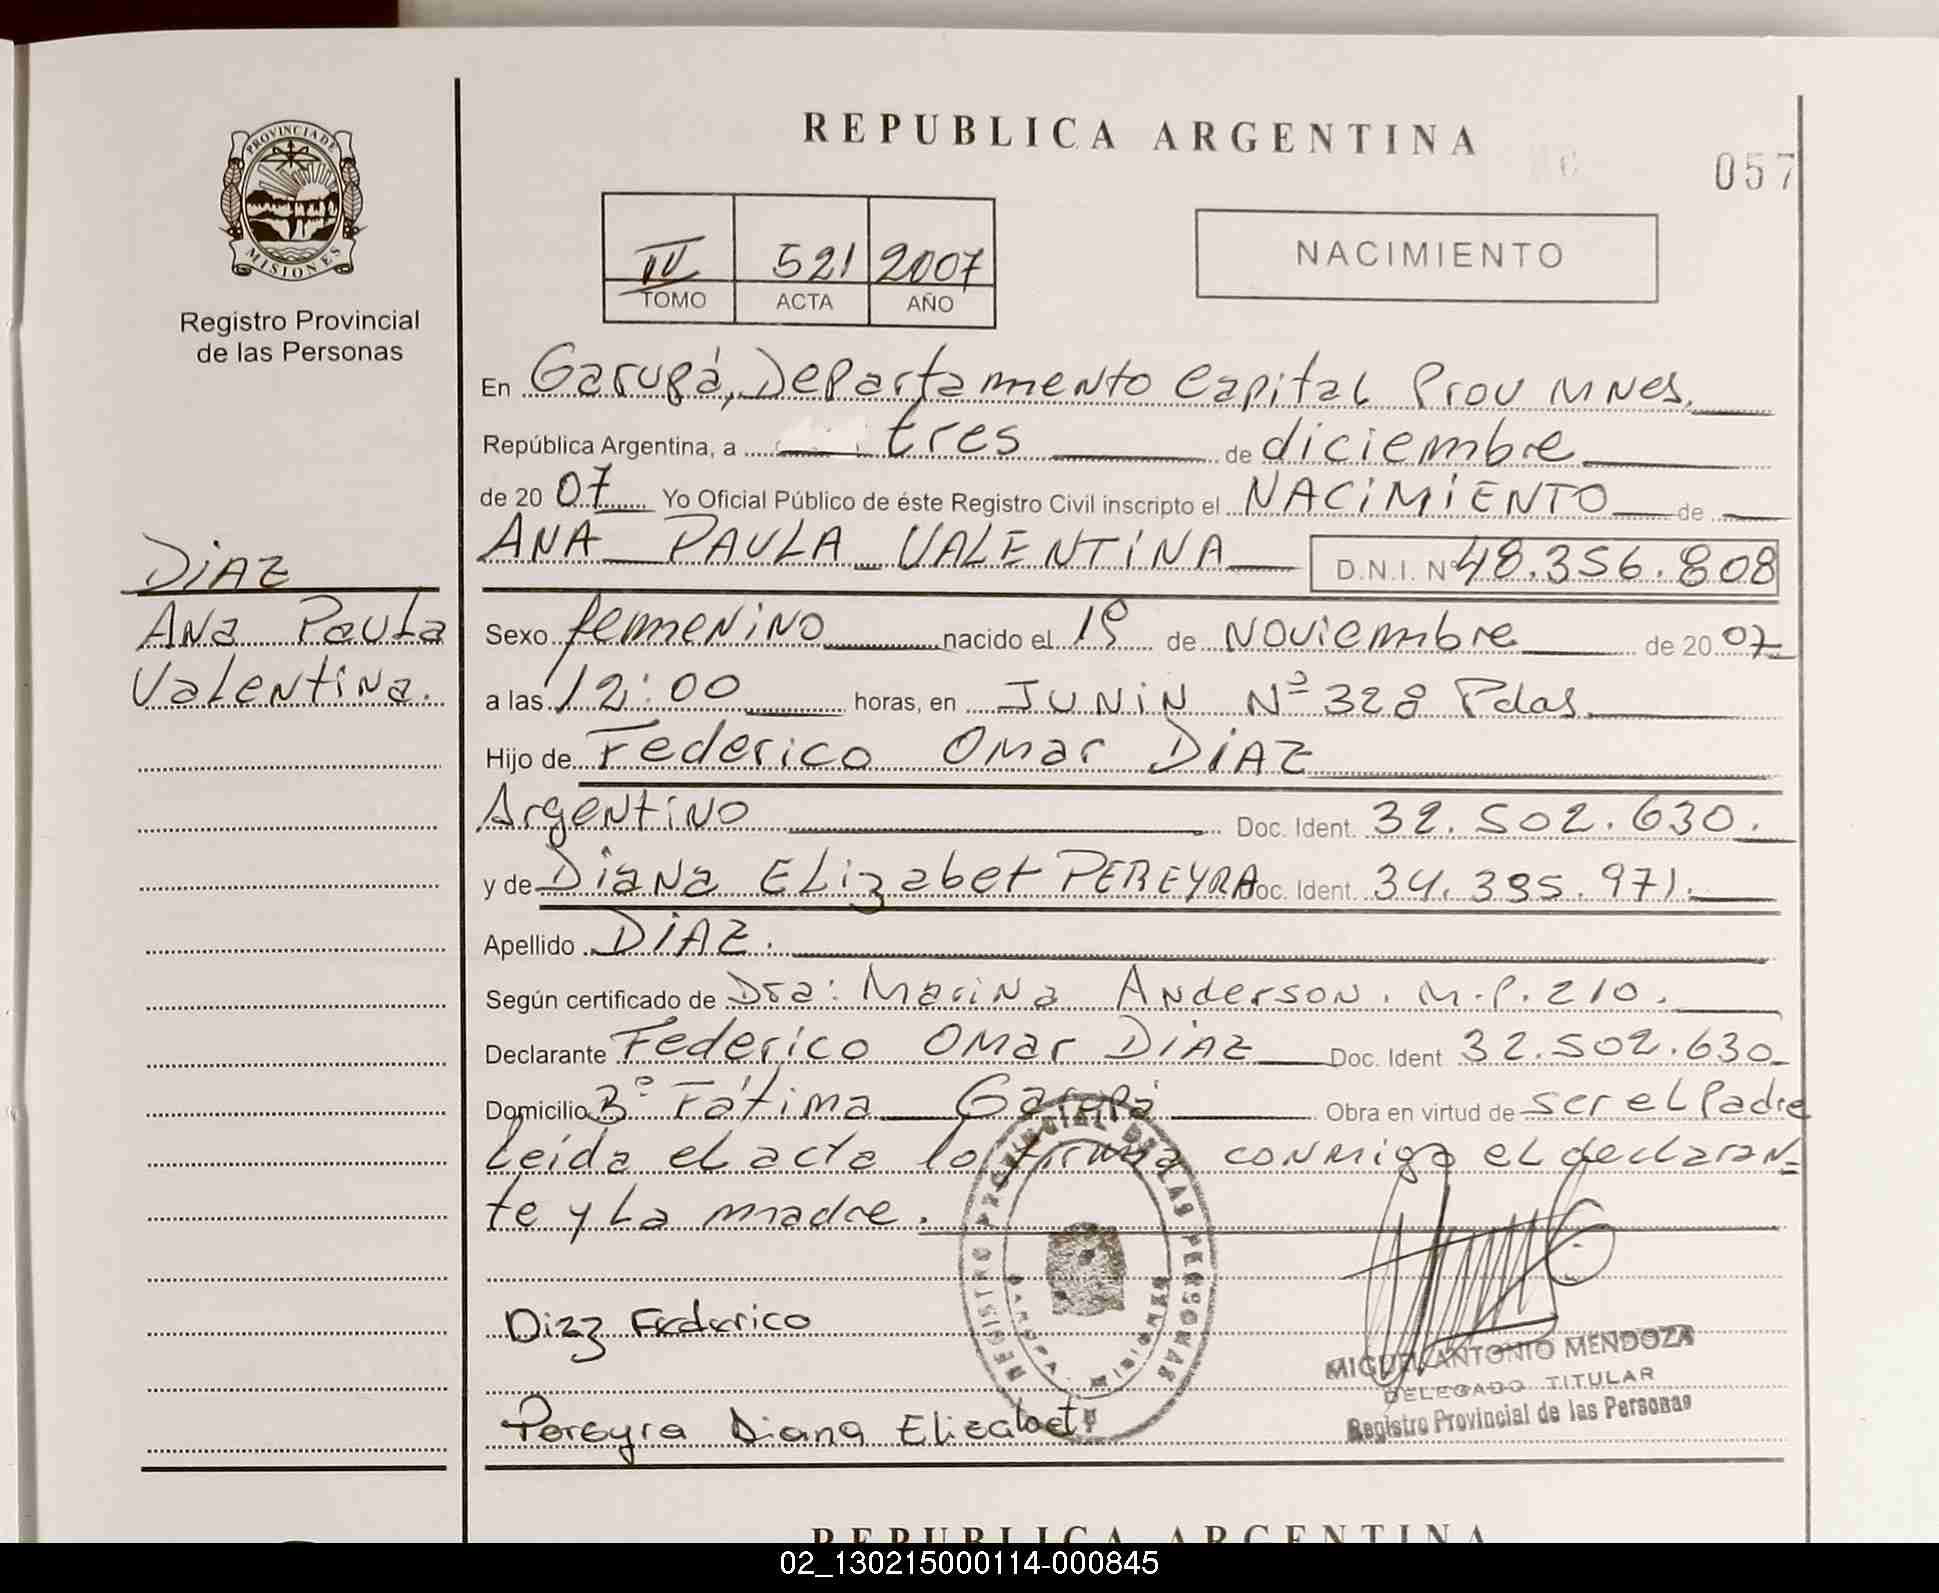 REPUBLICA ARGENTINA
057
PROVINCIA DE MISIONES
Registro Provincial
de las Personas
IV 521 2007
TOMO ACTA AÑO
NACIMIENTO
En Garupá, Departamento Capital Prov Mnes.
República Argentina, a tres de diciembre
de 2007 Yo Oficial Público de éste Registro Civil inscripto el NACIMIENTO de
ANA PAULA VALENTINA D.N.I. Nº 48.356.808
DIAZ
Ana Paula
Valentina.
Sexo femenino nacido el 19 de Noviembre de 2007
a las 12:00 horas, en JUNIN Nº 328 Pdas.
Hijo de Federico Omar DIAZ
Argentino Doc. Ident. 32.502.630.
y de Diana Elizabet PEREYRA Doc. Ident. 34.395.971.
Apellido DIAZ.
Según certificado de Dra: Marina Anderson. M.P. 210.
Declarante Federico Omar DIAZ Doc. Ident 32.502.630
Domicilio Bº Fátima Garupá Obra en virtud de ser el Padre
Leída el acta lo firma conmigo el declaran=
te y la madre.
REGISTRO PROVINCIAL DE LAS PERSONAS
Diaz Federico
MIGUEL ANTONIO MENDOZA
DELEGADO TITULAR
Registro Provincial de las Personas
Pereyra Diana Elizabet
REPUBLICA ARGENTINA
02_130215000114-000845